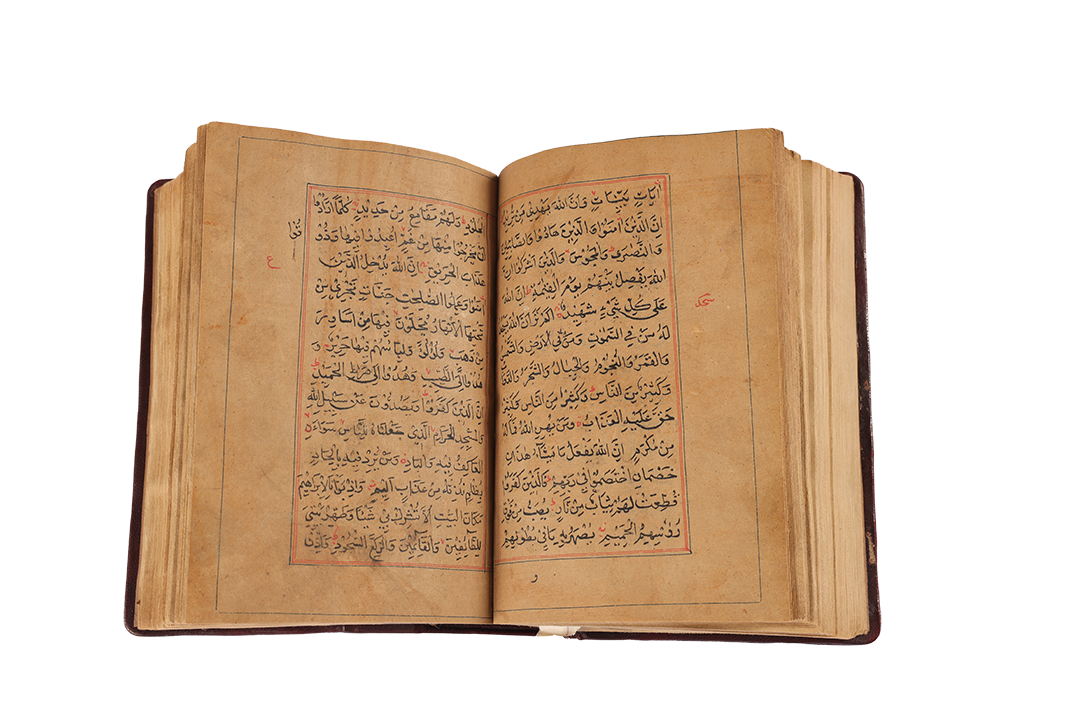 اٰيات بينات وان الله يهدي من يريد
ان الذين امنوا والذين هادوا والصابئين
والنصرى والمجوس والذين اشركوا ان
الله يفصل بينهم يوم القيمة ان الله
على كل شيء شهيد الم تر ان الله يسجد
له من في السموت ومن في الارض والشمس
والقمر والنجوم والجبال والشجر والدواب
وكثير من الناس وكثيرا من الناس وكثير
حق عليه العذاب ومن يهن الله فما له
من مكرم ان الله يفعل ما يشاء هذان
خصمان اختصموا في ربهم فالذين كفروا
قطعت لهم ثياب من نار يصب من فوق
رؤسهم الحميم يصهر به ما في بطونهم
و
سجده
والجلود ولهم مقامع من حديد كلما ارادوا
ان يخرجوا منها من غم اعيدوا فيها وذو
قوا
عذاب الحريق ان الله يدخل الذين
ع
امنوا وعملوا الصلحت جنات تجري من
تحتها الانهار يحلون فيها من اساور
من ذهب ولؤلؤا ولباسهم فيها حرير و
هدوا الى الطيب وهدوا الى صراط الحميد
ان الذين كفروا ويصدون عن سبيل الله
والمسجد الحرام الذي جعلناه للناس سواء
العاكف فيه والباد ومن يرد فيه بالحاد
بظلم نذقه من عذاب اليم واذ بوانا لابراهيم
مكان البيت الا تشرك بي شيئا وطهر بيتي
للطائفين والقائمين والركع السجود واذن